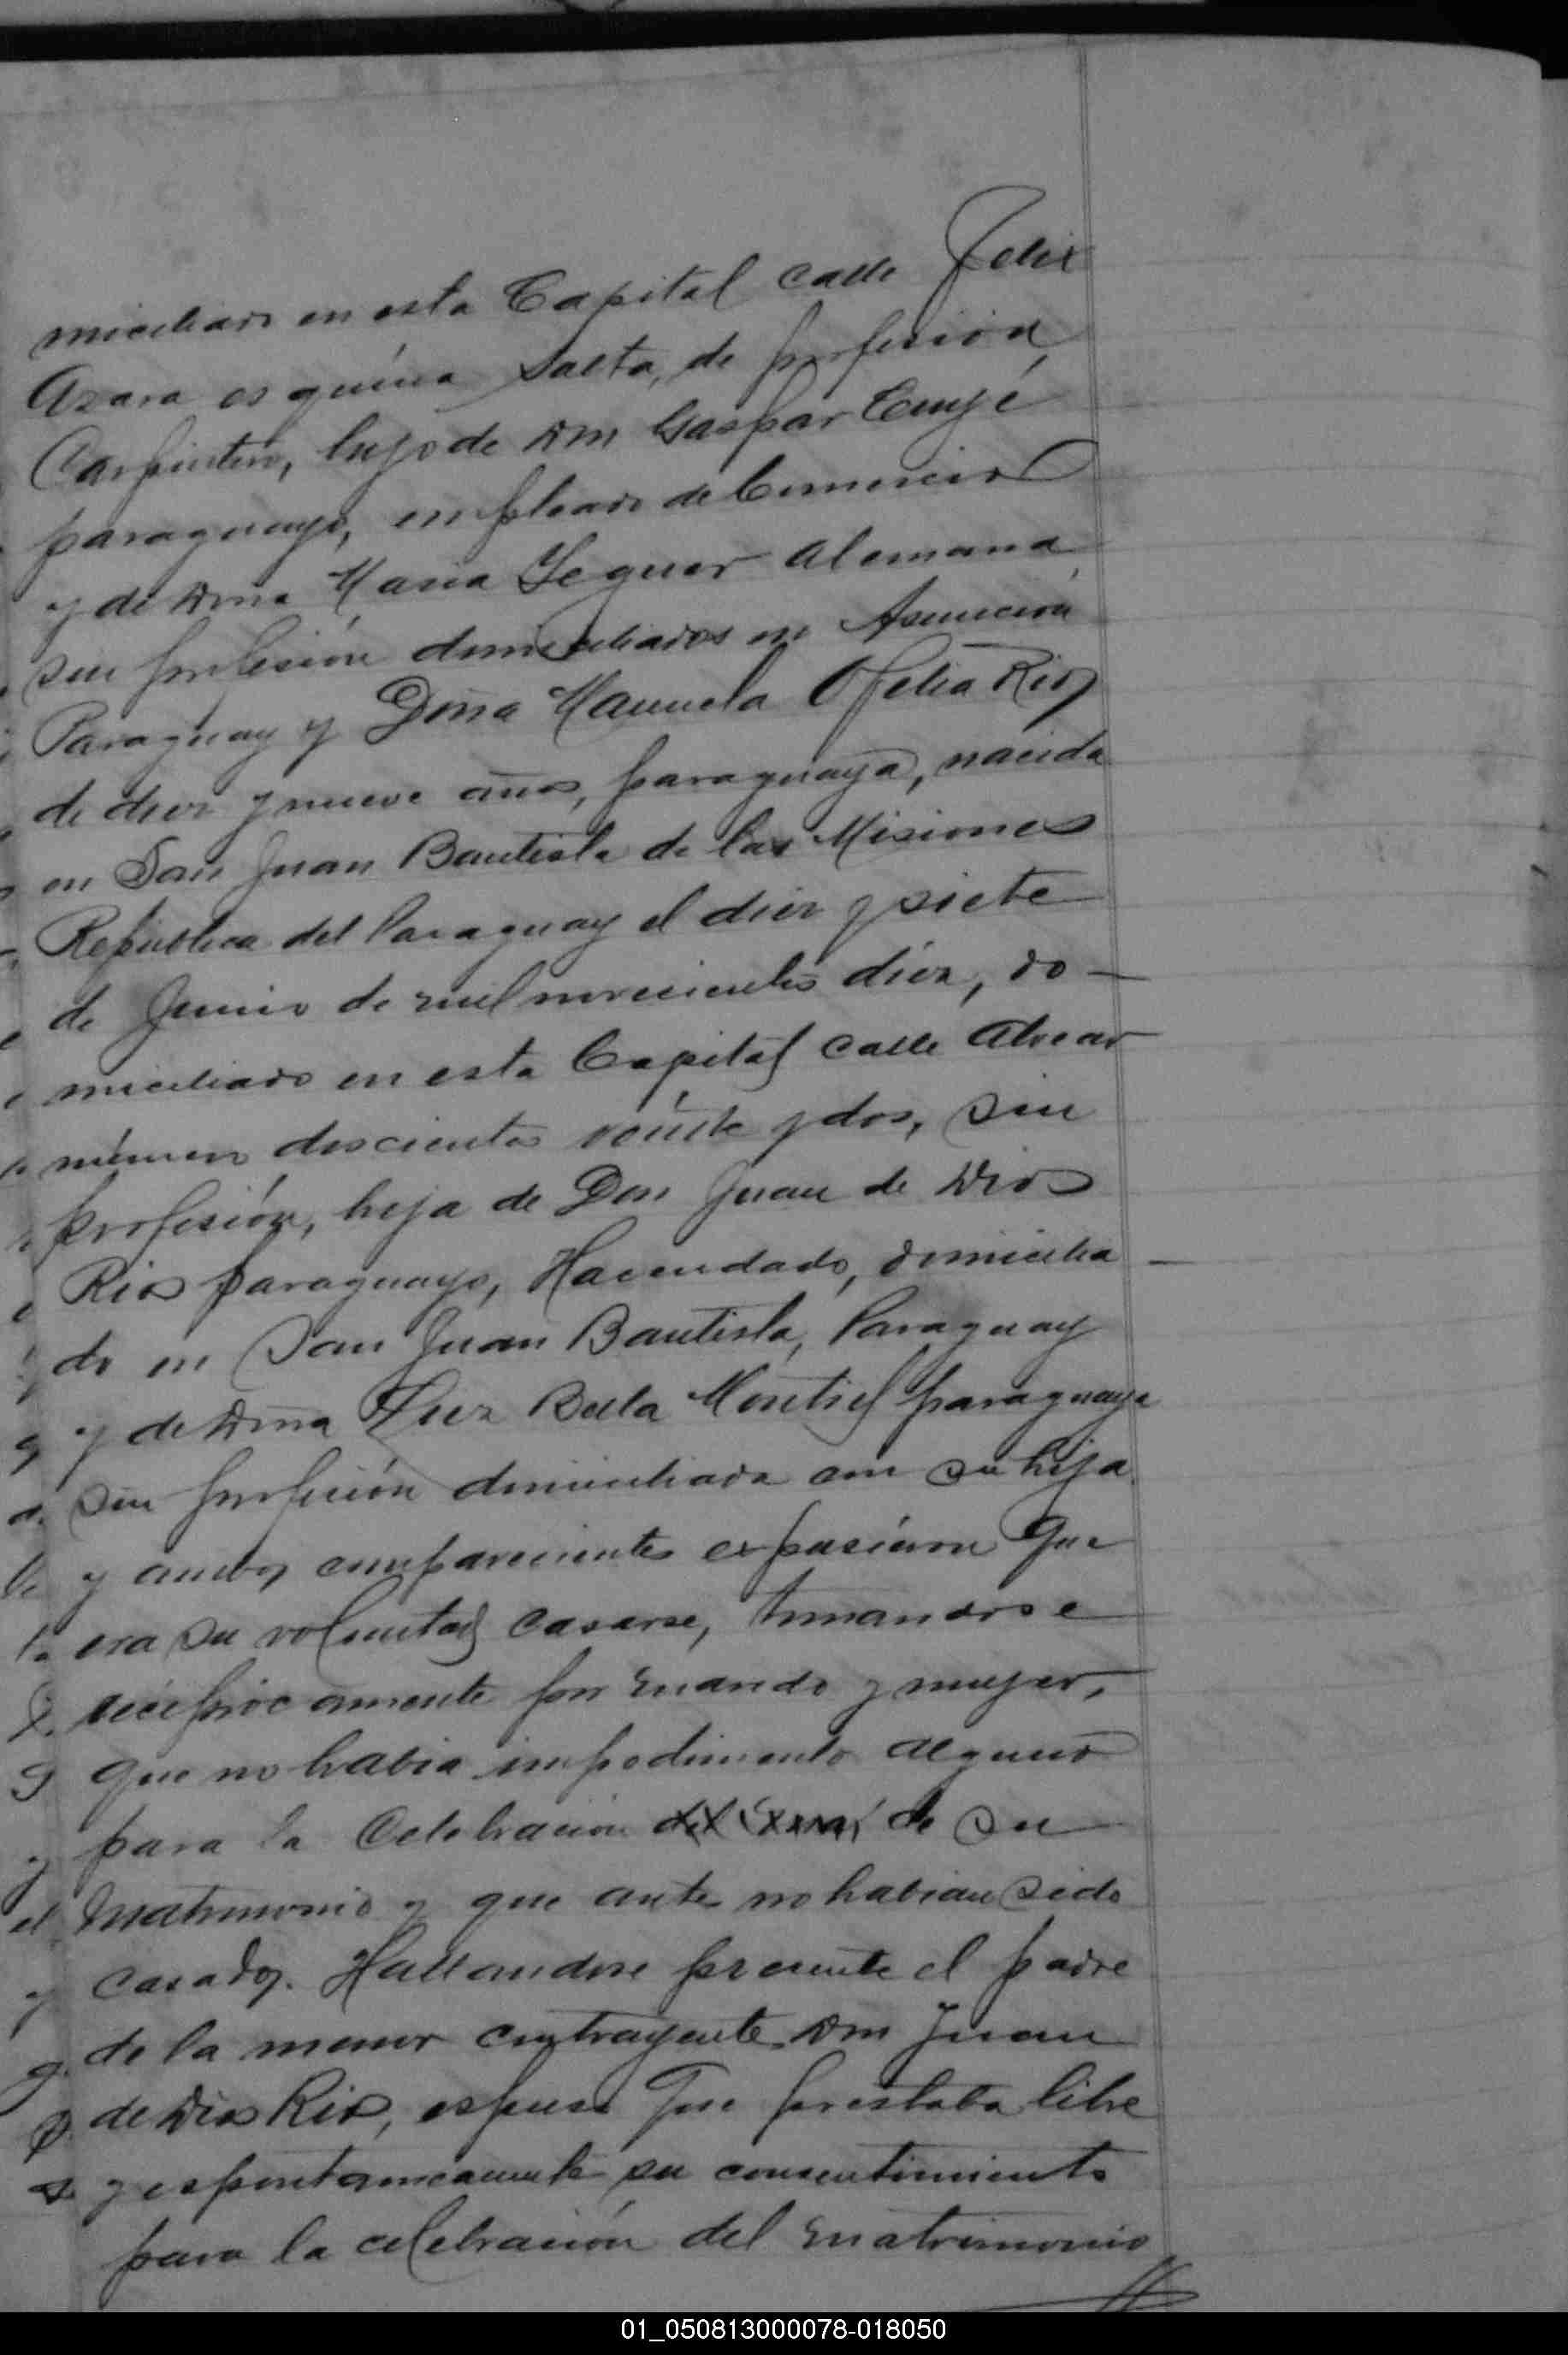 miciliado en esta Capital calle Felix
Azara esquina Salta, de profesión
Carpintero, hijo de Don Gaspar
paraguayo, empleado de Comercio
y de Doña Maria Yeguer alemana,
sin profesión domiciliados en Asunción
Paraguay y Doña Manuela Ofelia Rios
de diez y nueve años, paraguaya, nacida
en San Juan Bautista de las Misiones
República del Paraguay el diez y siete
de Junio de mil novecientos diez, do-
miciliado en esta Capital calle Alvear
número doscientos veinte y dos, sin
profesión, hija de Don Juan de Dios
Rios paraguayo, Hacendado, domicilia-
do en San Juan Bautista, Paraguay
y de Doña Luz Bella Montiel paraguaya
sin profesión domiciliada con su hija
y ambos comparecientes expusieron que
era su voluntad casarse, tomandose
recíprocamente por marido y mujer,
que no habia impedimento alguno
para la Celebracion del de su
Matrimonio y que antes no habian sido
casados. Hallandose presente el padre
de la menor contrayente Don Juan
de Dios Rios, espuso que prestaba libre
y espontaneamente su consentimiento
para la celebración del matrimonio
01_050813000078-018050